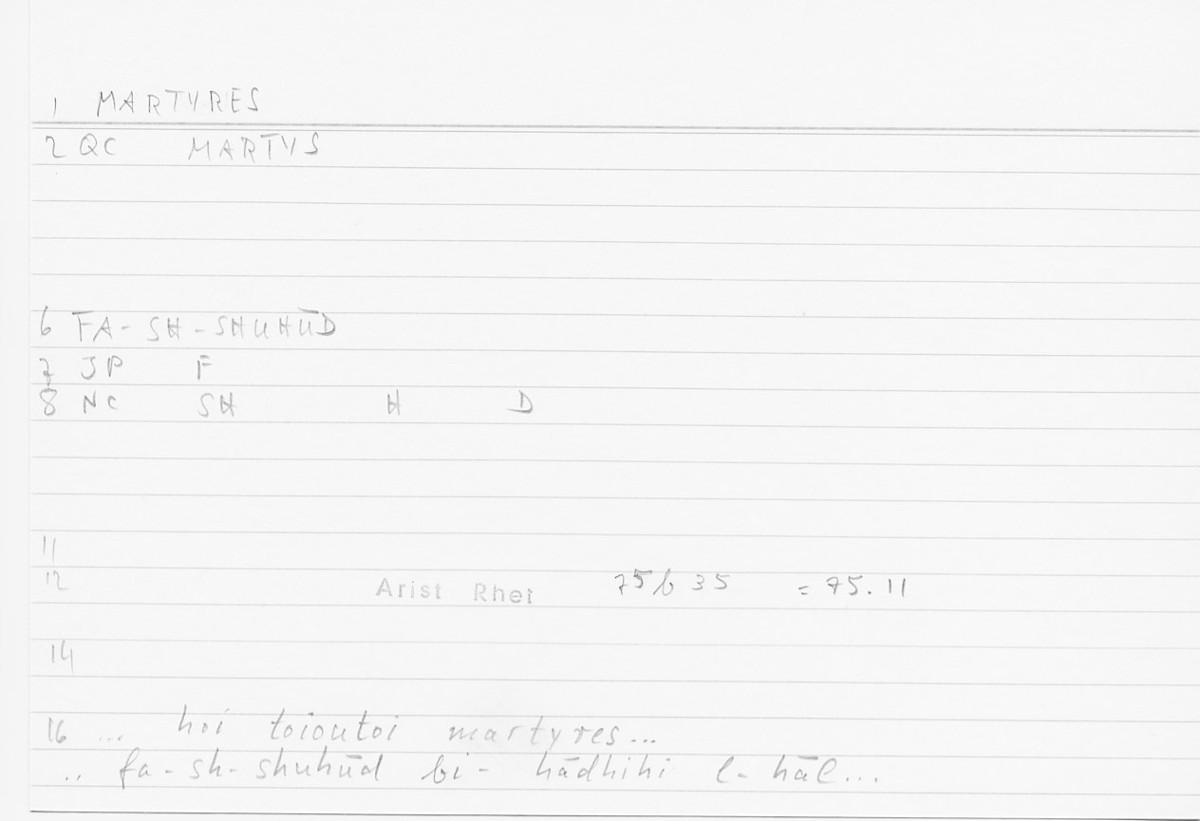 1 MARTYRES
2 QC MARTYS
6 FA-SH-SHUHŪD
7 JP F
8 NC SH H D
11
12 Arist Rhet 75b35 = 75.11
14
16 ... hoi toioutoi martyres...
.. fa-sh-shuhūd bi-hādhihi l-hāl...